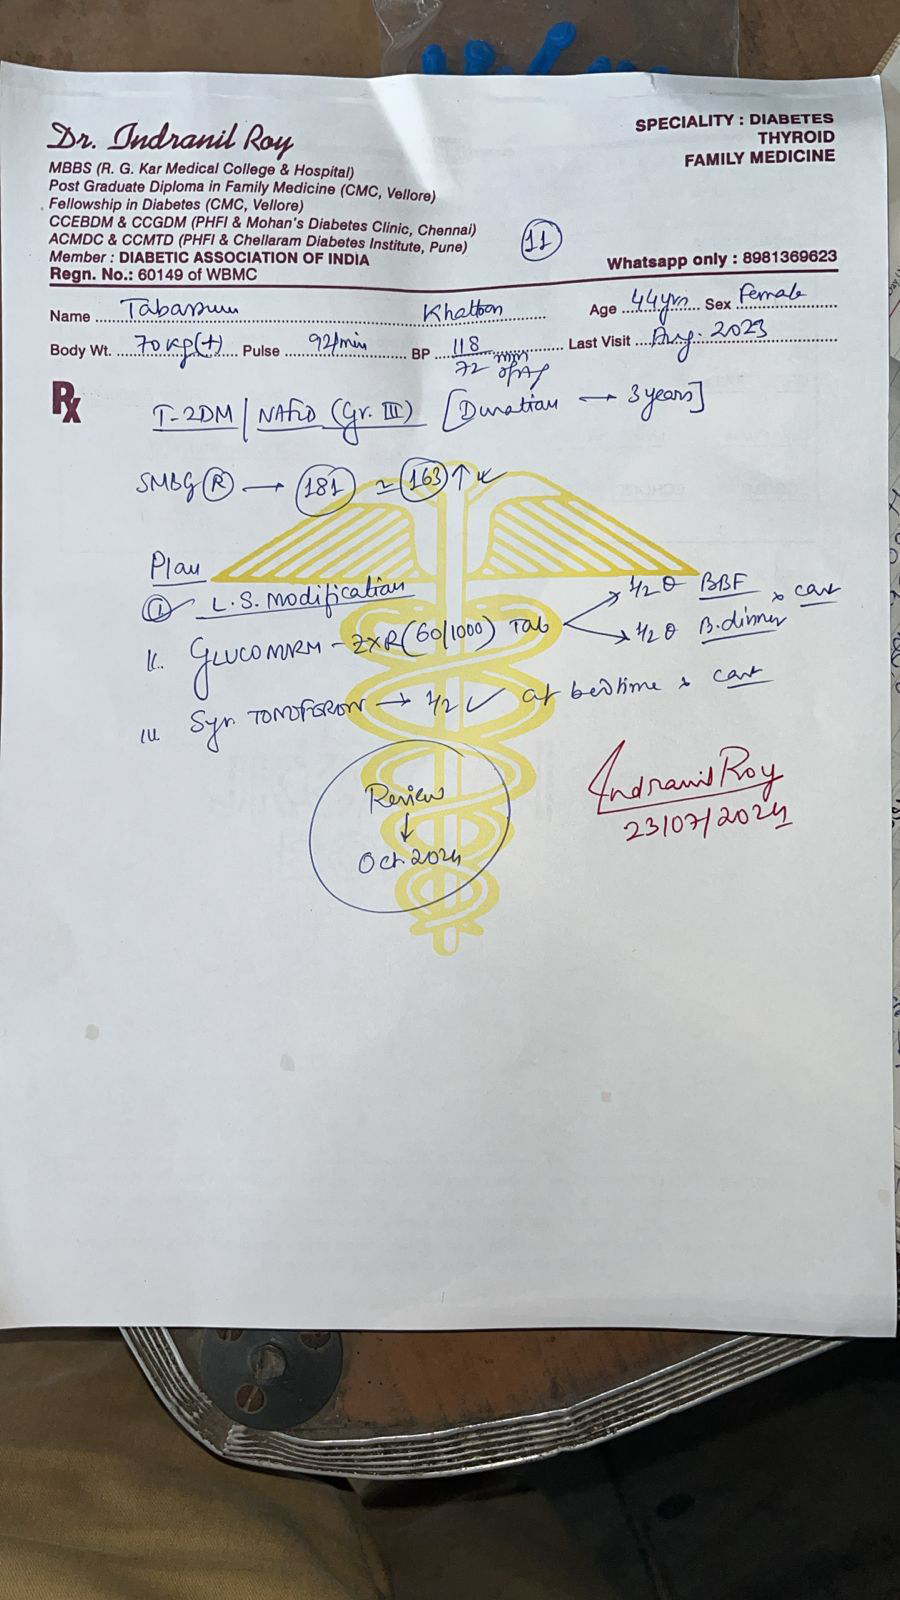 Dr. Indranil Roy
MBBS (R. G. Kar Medical College & Hospital)
Post Graduate Diploma in Family Medicine (CMC, Vellore)
Fellowship in Diabetes (CMC, Vellore)
CCEBDM & CCGDM (PHFI & Mohan's Diabetes Clinic, Chennai)
ACMDC & CCMTD (PHFI & Chellaram Diabetes Institute, Pune)
Member : DIABETIC ASSOCIATION OF INDIA
Regn. No.: 60149 of WBMC
SPECIALITY : DIABETES
THYROID
FAMILY MEDICINE
11
Whatsapp only : 8981369623
Name Khatoon Age 44yrs Sex Female
Body Wt. 70 kg(+) Pulse 92/min BP 118/72 mm of Hg Last Visit Aug. 2023
Rx
T-2DM / NAFLD (Gr. III) [Duration → 3 years]
SMBG (R) → 181 ≃ 163 ↑
Plan
I. L.S. Modification
II. (60/1000) Tab → 1/2 BBF
→ 1/2 B. dinner x cont
III. Syr. → 1/2 at bedtime x cont
Review
↓
Oct. 2024
Indranil Roy
23/07/2024